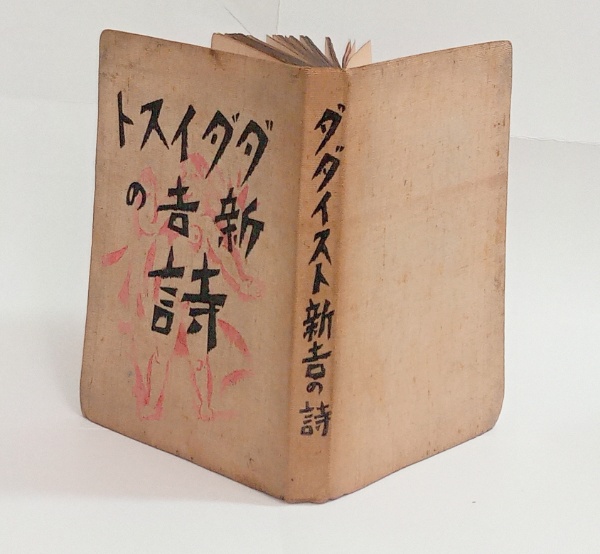 ダダイスト
新吉の
詩
ダダイスト新吉の詩